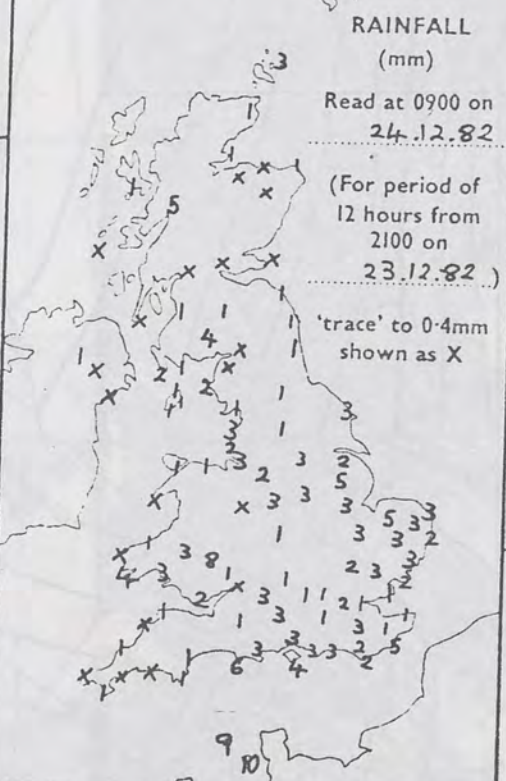 RAINFALL
(mm)
Read at 0900 on
24.12.82
(For period of
12 hours from
2100 on
23.12.82)
'trace' to 0·4mm
shown as X
3
1
1 X 1
X X
5
X
X X X
X
1 1 1
1
4 1
1 X
X X
2 1 2
X
4 1
1
3
1
3
2
3 3 2
2 5
X X 3 3 3
5 3 3
1 3 3 2
X 3 8 3
1 1 2 3 2
4 3
2 X 3 1 1 2
X 1 3 1 3 1
3 3 3 3 2 5
6 4 2
X X X
9
10